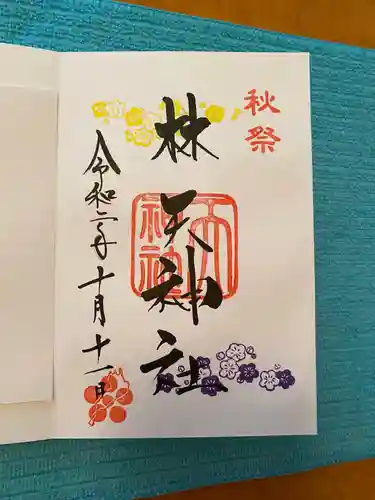 秋祭
林天神社
天神社
令和二年十月十一日